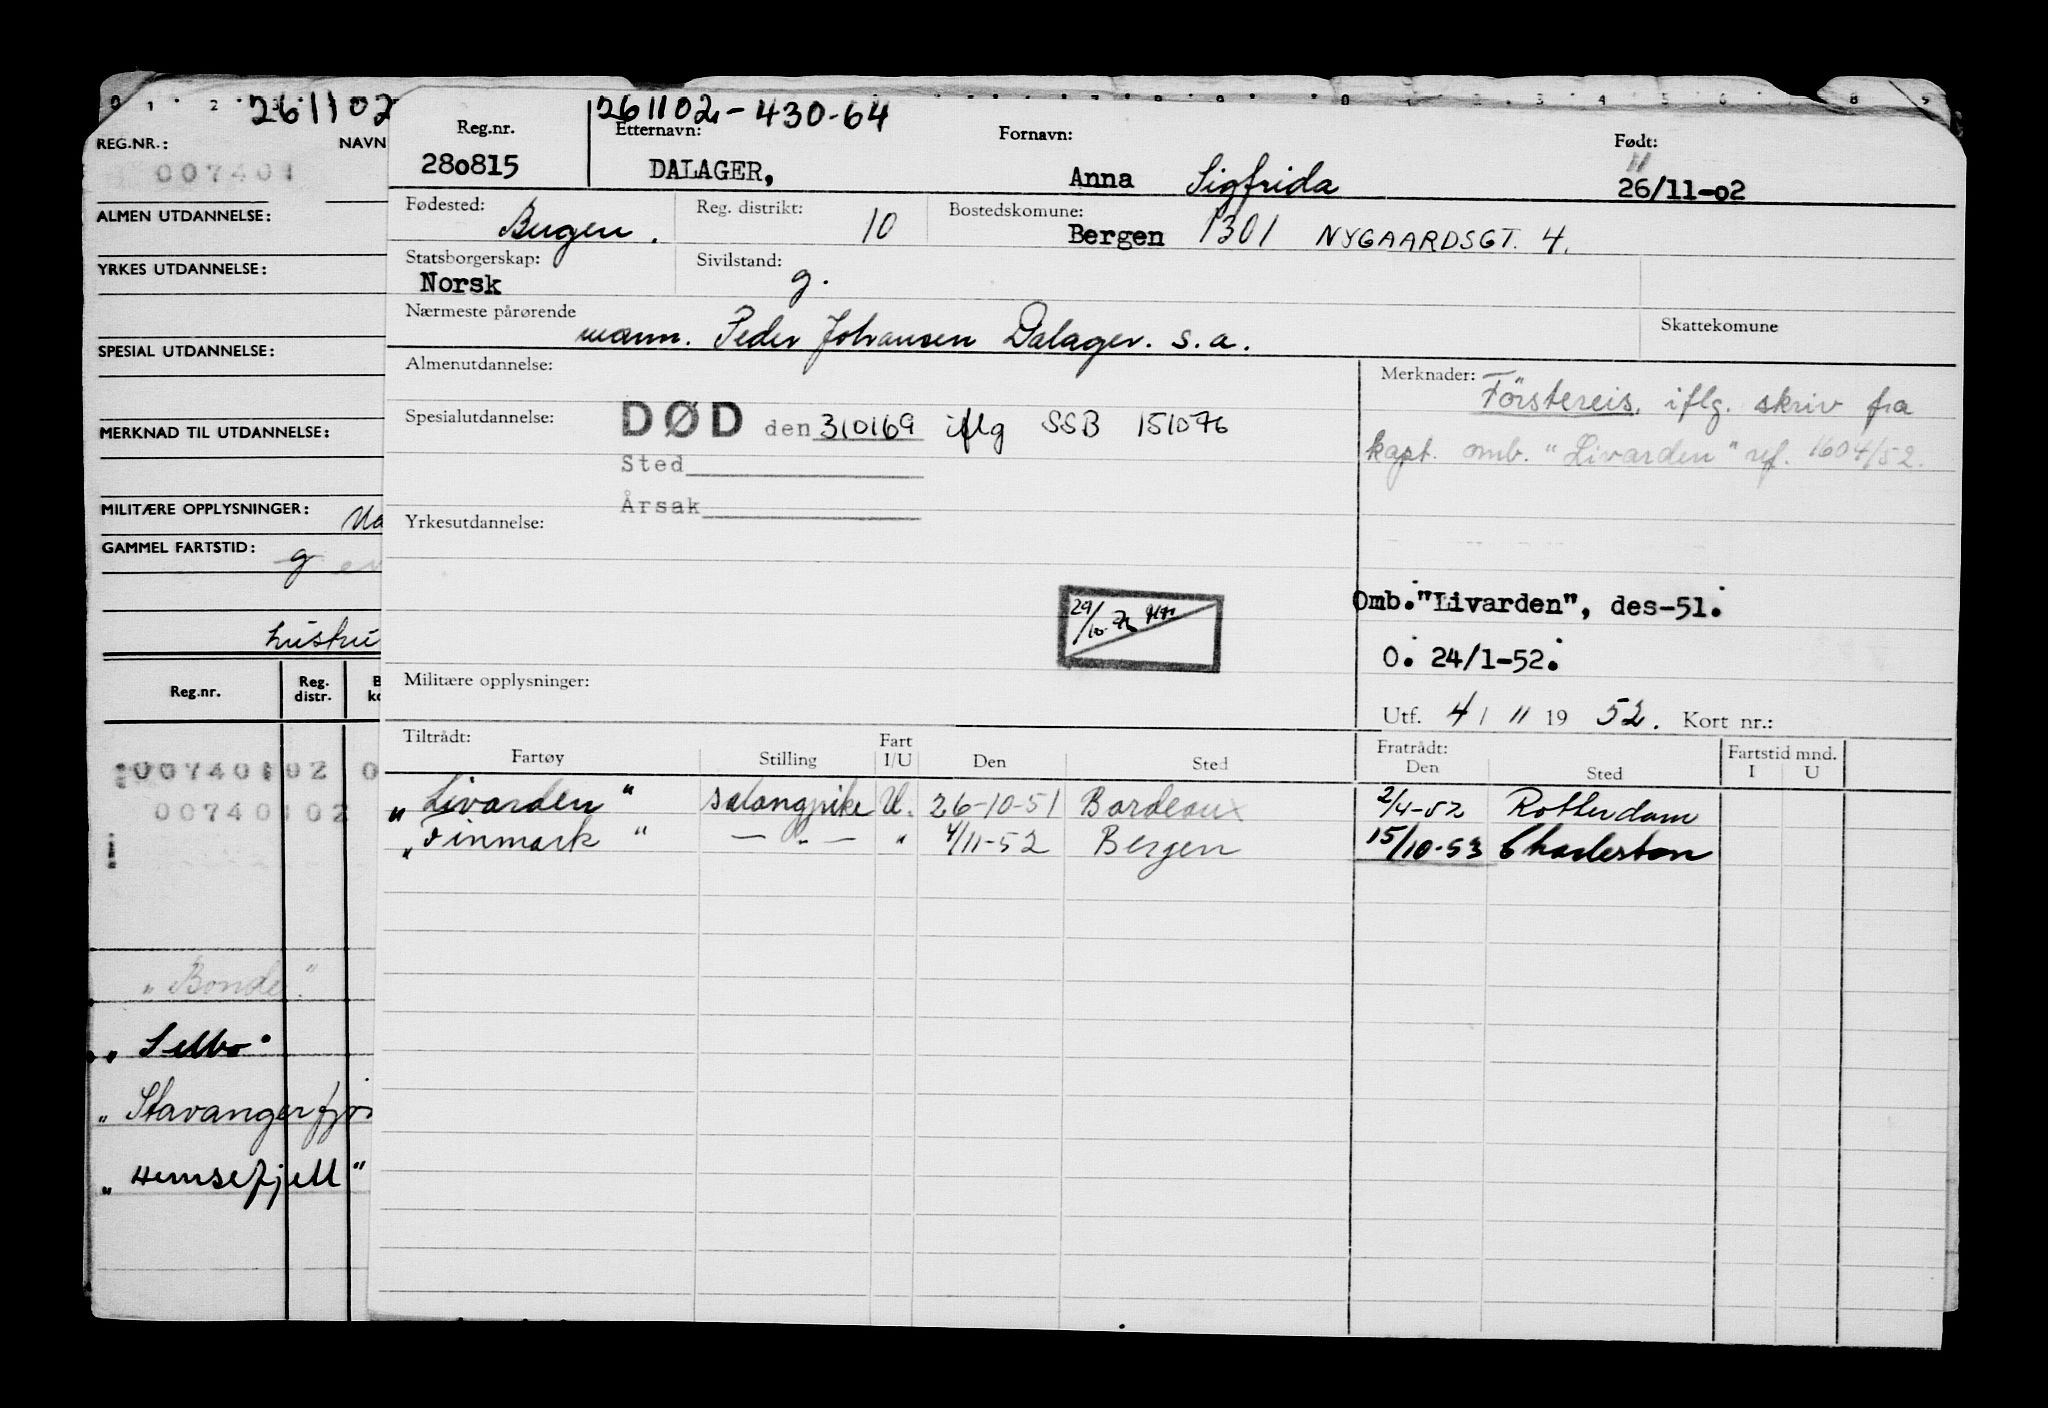 0 1 2 3
261102
REG.NR.: NAVN
007401
ALMEN UTDANNELSE:
YRKES UTDANNELSE:
SPESIAL UTDANNELSE:
MERKNAD TIL UTDANNELSE:
MILITÆRE OPPLYSNINGER:
GAMMEL FARTSTID: g
Reg.nr. Reg. distr.
00740102 0
00740102
"Bonde"
"Selbo"
"Stavangerfjo
"Hemsefjell"
261102-430-64
Reg.nr. Etternavn: Fornavn: Født:
280815 DALAGER, Anna Sigfrida 26/11-02
Fødested: Bergen. Reg. distrikt: 10 Bostedskomune: Bergen 1301 NYGAARDSGT. 4.
Statsborgerskap: Norsk Sivilstand: g.
Nærmeste pårørende mann. Peder Johansen Dalager. s.a. Skattekomune
Almenutdannelse: Merknader: Förstereis, iflg. skriv fra
kapt. omb. "Livarden" ref. 1604/52.
Spesialutdannelse: DØD den 310169 iflg SSB 151076
Sted
Årsak
Yrkesutdannelse:
29/10-76
Omb."Livarden", des-51.
O. 24/1-52.
Militære opplysninger:
Utf. 4/11 1952. Kort nr.:
Tiltrådt: Fratrådt: Fartstid mnd.
Fartøy Stilling Fart I/U Den Sted Den Sted I U
"Livarden" salongpike U. 26-10-51 Bordeaux 2/4-52 Rotterdam
"Finmark" — " — " 4/11-52 Bergen 15/10-53 Charleston